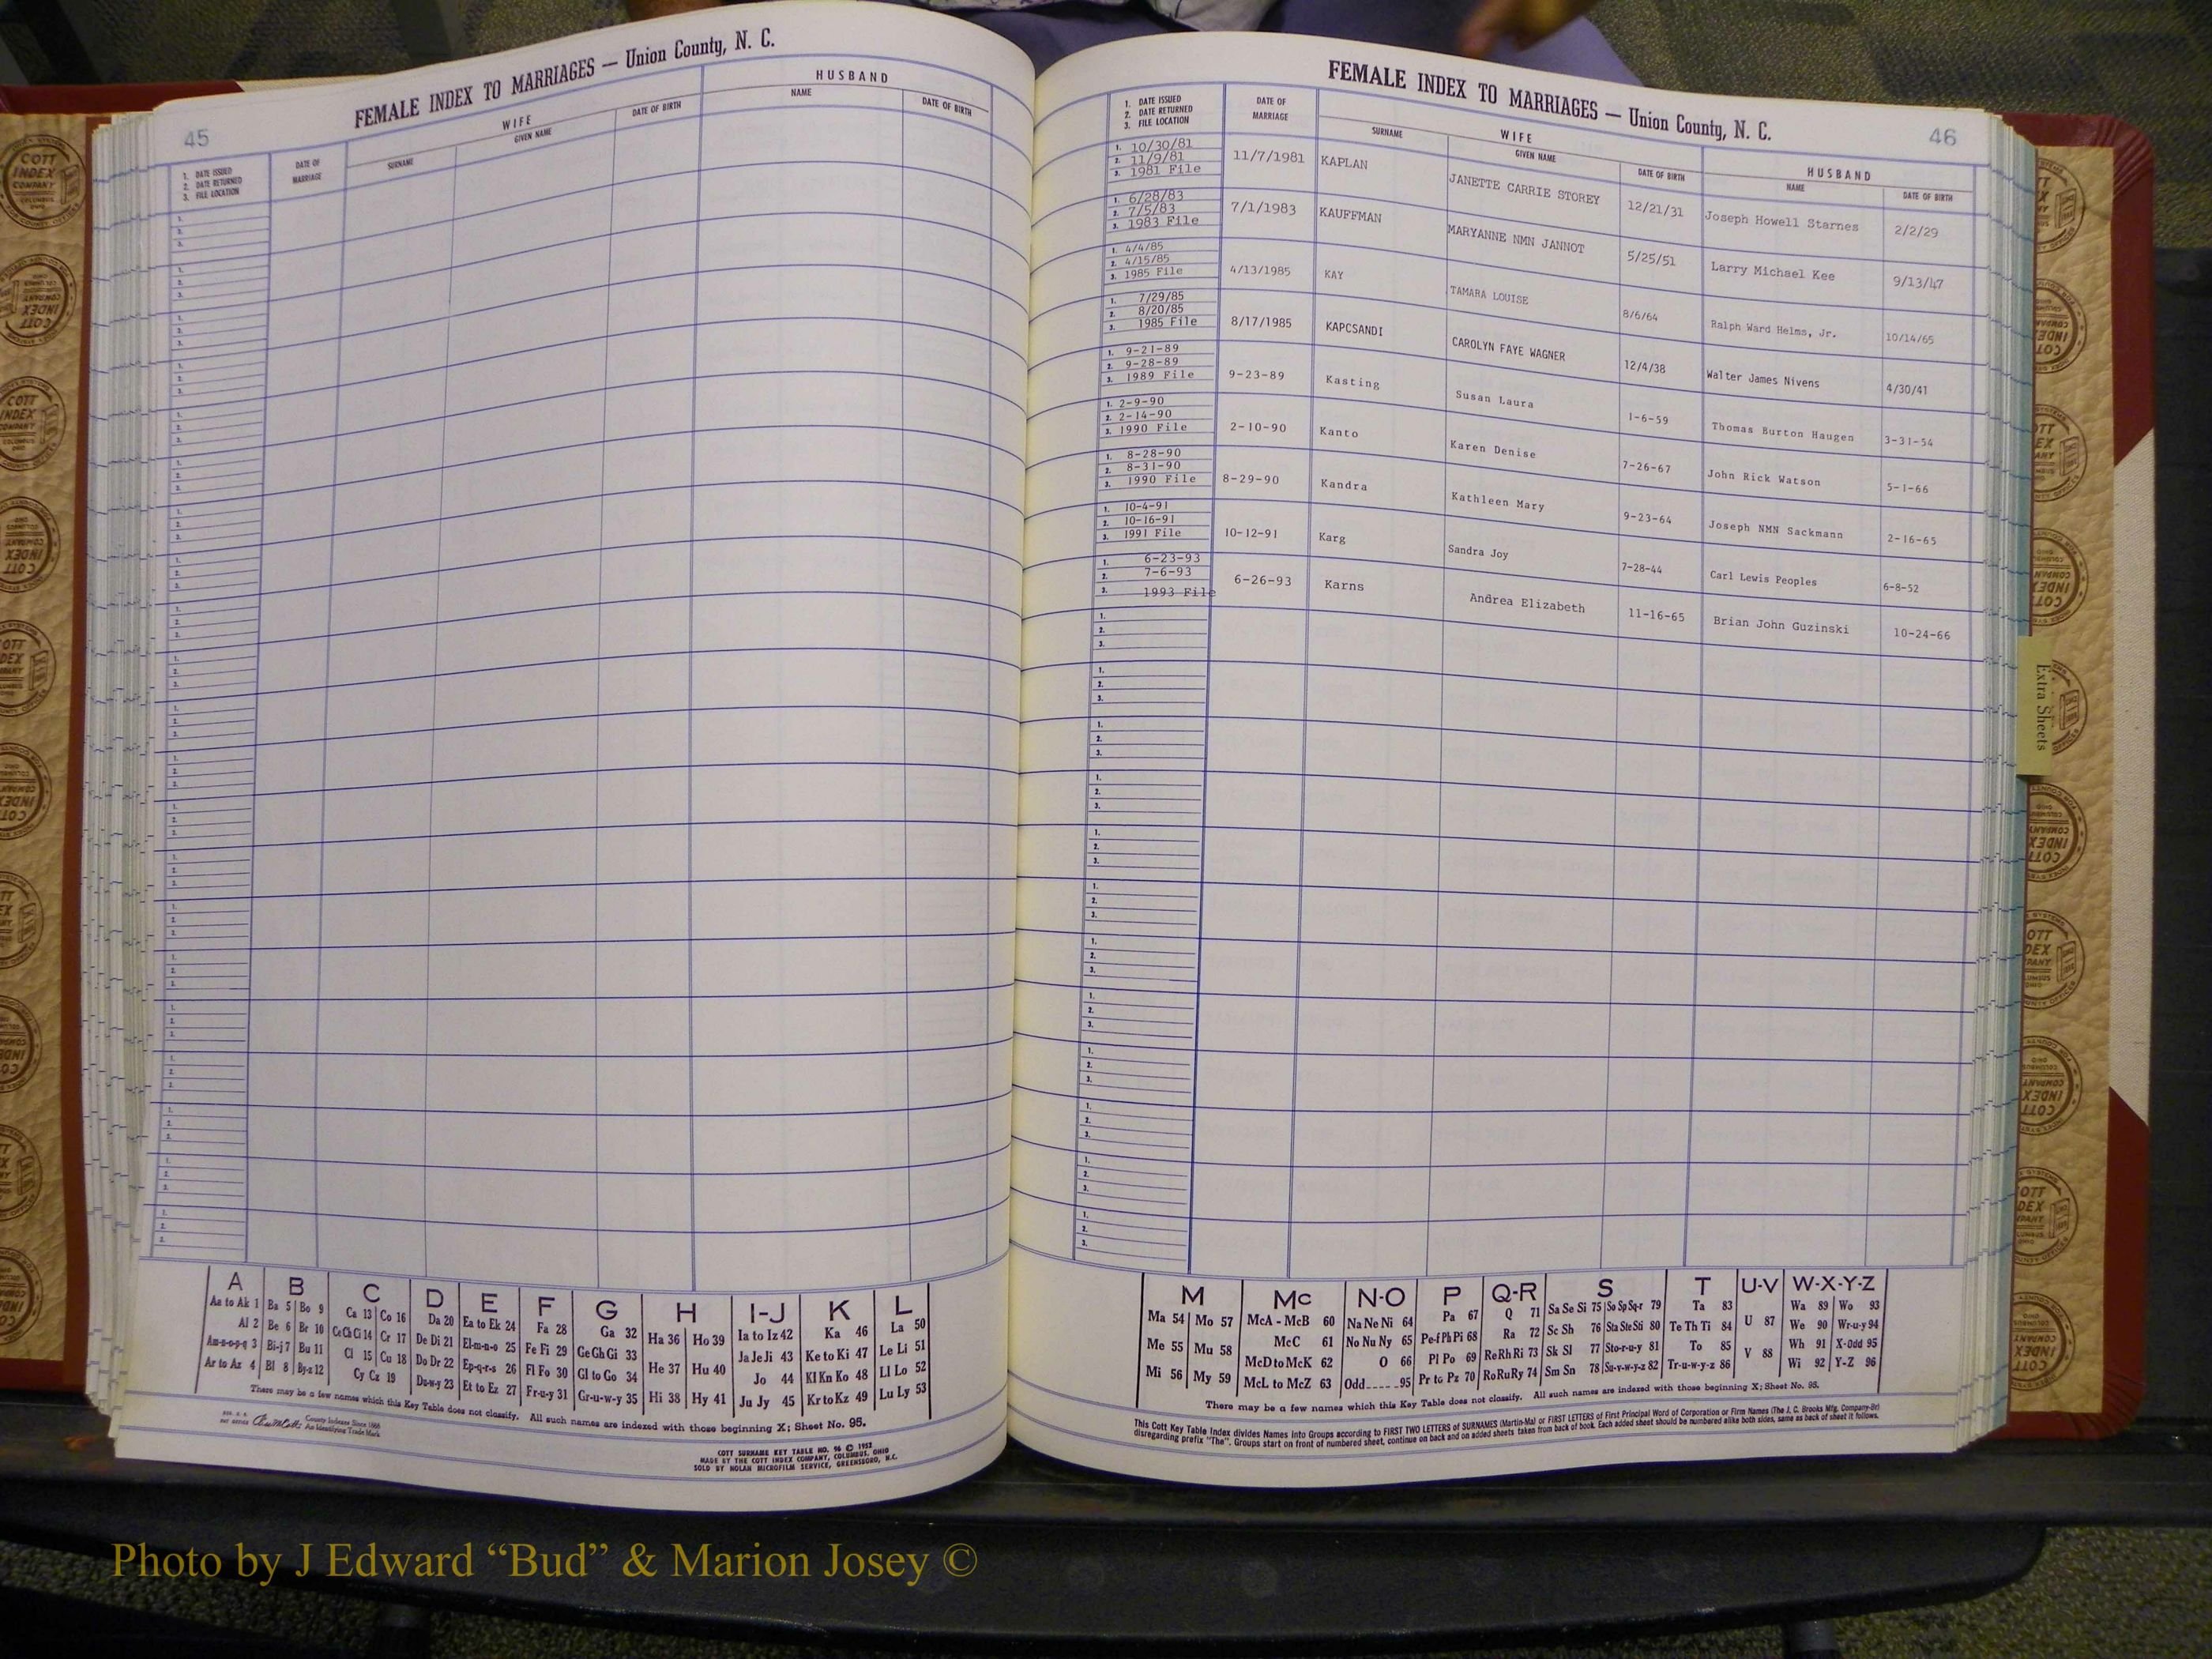 45
FEMALE INDEX TO MARRIAGES — Union County, N. C.
1. DATE ISSUED
2. DATE RETURNED
3. FILE LOCATION
DATE OF MARRIAGE
WIFE
SURNAME GIVEN NAME DATE OF BIRTH
HUSBAND
NAME DATE OF BIRTH
A B C D E F G H I-J K L
Aa to Ak 1 Ba 5 Bo 9 Ca 13 Co 16 Da 20 Ea to Ek 24 Fa 28 Ga 32 Ha 36 Ho 39 Ia to Iz 42 Ka 46 La 50
Al 2 Be 6 Br 10 Ce Ch Ci 14 Cr 17 De Di 21 El-m-n-o 25 Fe Fi 29 Ge Gh Gi 33 He 37 Hu 40 Ja Je Ji 43 Ke to Ki 47 Le Li 51
Am-n-o-p-q 3 Bi-j 7 Bu 11 Cl 15 Cu 18 Do Dr 22 Ep-q-r-s 26 Fl Fo 30 Gl to Go 34 Hi 38 Hy 41 Jo 44 Kl Kn Ko 48 Ll Lo 52
Ar to Az 4 Bl 8 By-z 12 Cy Cz 19 Du-w-y 23 Et to Ez 27 Fr-u-y 31 Gr-u-w-y 35 Ju Jy 45 Kr to Kz 49 Lu Ly 53
There may be a few names which this Key Table does not classify. All such names are indexed with those beginning X; Sheet No. 95.
County Indexes Since 1888
An Identifying Trade Mark
COTT SURNAME KEY TABLE NO. 96 © 1952
MADE BY THE COTT INDEX COMPANY, COLUMBUS, OHIO
SOLD BY NOLAN MICROFILM SERVICE, GREENSBORO, N.C.
46
FEMALE INDEX TO MARRIAGES — Union County, N. C.
1. DATE ISSUED
2. DATE RETURNED
3. FILE LOCATION
DATE OF MARRIAGE
WIFE
SURNAME GIVEN NAME DATE OF BIRTH
HUSBAND
NAME DATE OF BIRTH
1. 10/30/81
2. 11/9/81
3. 1981 File
11/7/1981 KAPLAN JANETTE CARRIE STOREY 12/21/31 Joseph Howell Starnes 2/2/29
1. 6/28/83
2. 7/5/83
3. 1983 File
7/1/1983 KAUFFMAN MARYANNE NMN JANNOT 5/25/51 Larry Michael Kee 9/13/47
1. 4/4/85
2. 4/15/85
3. 1985 File
4/13/1985 KAY TAMARA LOUISE 8/6/64 Ralph Ward Helms, Jr. 10/14/65
1. 7/29/85
2. 8/20/85
3. 1985 File
8/17/1985 KAPCSANDI CAROLYN FAYE WAGNER 12/4/38 Walter James Nivens 4/30/41
1. 9-21-89
2. 9-28-89
3. 1989 File
9-23-89 Kasting Susan Laura 1-6-59 Thomas Burton Haugen 3-31-54
1. 2-9-90
2. 2-14-90
3. 1990 File
2-10-90 Kanto Karen Denise 7-26-67 John Rick Watson 5-1-66
1. 8-28-90
2. 8-31-90
3. 1990 File
8-29-90 Kandra Kathleen Mary 9-23-64 Joseph NMN Sackmann 2-16-65
1. 10-4-91
2. 10-16-91
3. 1991 File
10-12-91 Karg Sandra Joy 7-28-44 Carl Lewis Peoples 6-8-52
1. 6-23-93
2. 7-6-93
3. 1993 File
6-26-93 Karns Andrea Elizabeth 11-16-65 Brian John Guzinski 10-24-66
Extra Sheets
M Mc N-O P Q-R S T U-V W-X-Y-Z
Ma 54 Mo 57 McA - McB 60 Na Ne Ni 64 Pa 67 Q 71 Sa Se Si 75 So Sp Sq-r 79 Ta 83 U 87 Wa 89 Wo 93
Me 55 Mu 58 McC 61 No Nu Ny 65 Pe-f Ph Pi 68 Ra 72 Sc Sh 76 Sta Ste Sti 80 Te Th Ti 84 V 88 We 90 Wr-u-y 94
Mi 56 My 59 McD to McK 62 O 66 Pl Po 69 Re Rh Ri 73 Sk Sl 77 Sto-r-u-y 81 To 85 Wh 91 X-Odd 95
McL to McZ 63 Odd 95 Pr to Pz 70 Ro Ru Ry 74 Sm Sn 78 Su-v-w-y-z 82 Tr-u-w-y-z 86 Wi 92 Y-Z 96
There may be a few names which this Key Table does not classify. All such names are indexed with those beginning X; Sheet No. 95.
This Cott Key Table Index divides Names into Groups according to FIRST TWO LETTERS of SURNAMES (Martin-Ma) or FIRST LETTERS of First Principal Word of Corporation or Firm Names (The J. C. Brooks Mfg. Company-Br)
disregarding prefix "The". Groups start on front of numbered sheet, continue on back and on added sheets taken from back of book. Each added sheet should be numbered alike both sides, same as back of sheet it follows.
Photo by J Edward “Bud” & Marion Josey ©